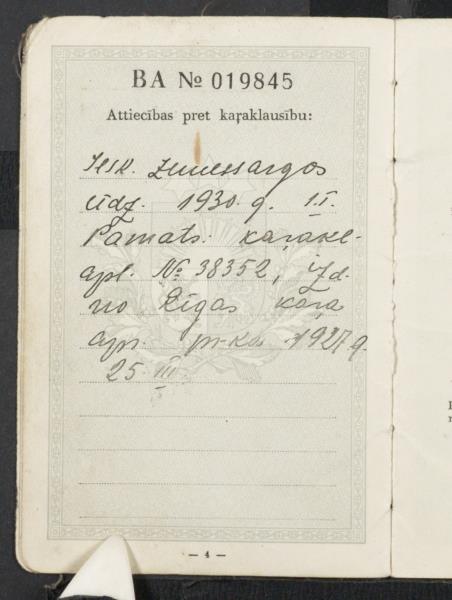 BA № 019845
Attiecības pret kaŗaklausību:
Iesk. zemessargos
līdz. 1930. g. 1.I.
Pamats: kaŗakl.
apl. № 38352, izd.
no Rīgas kaŗa
apr. pr-ka 1927 g.
25. III
— 4 —